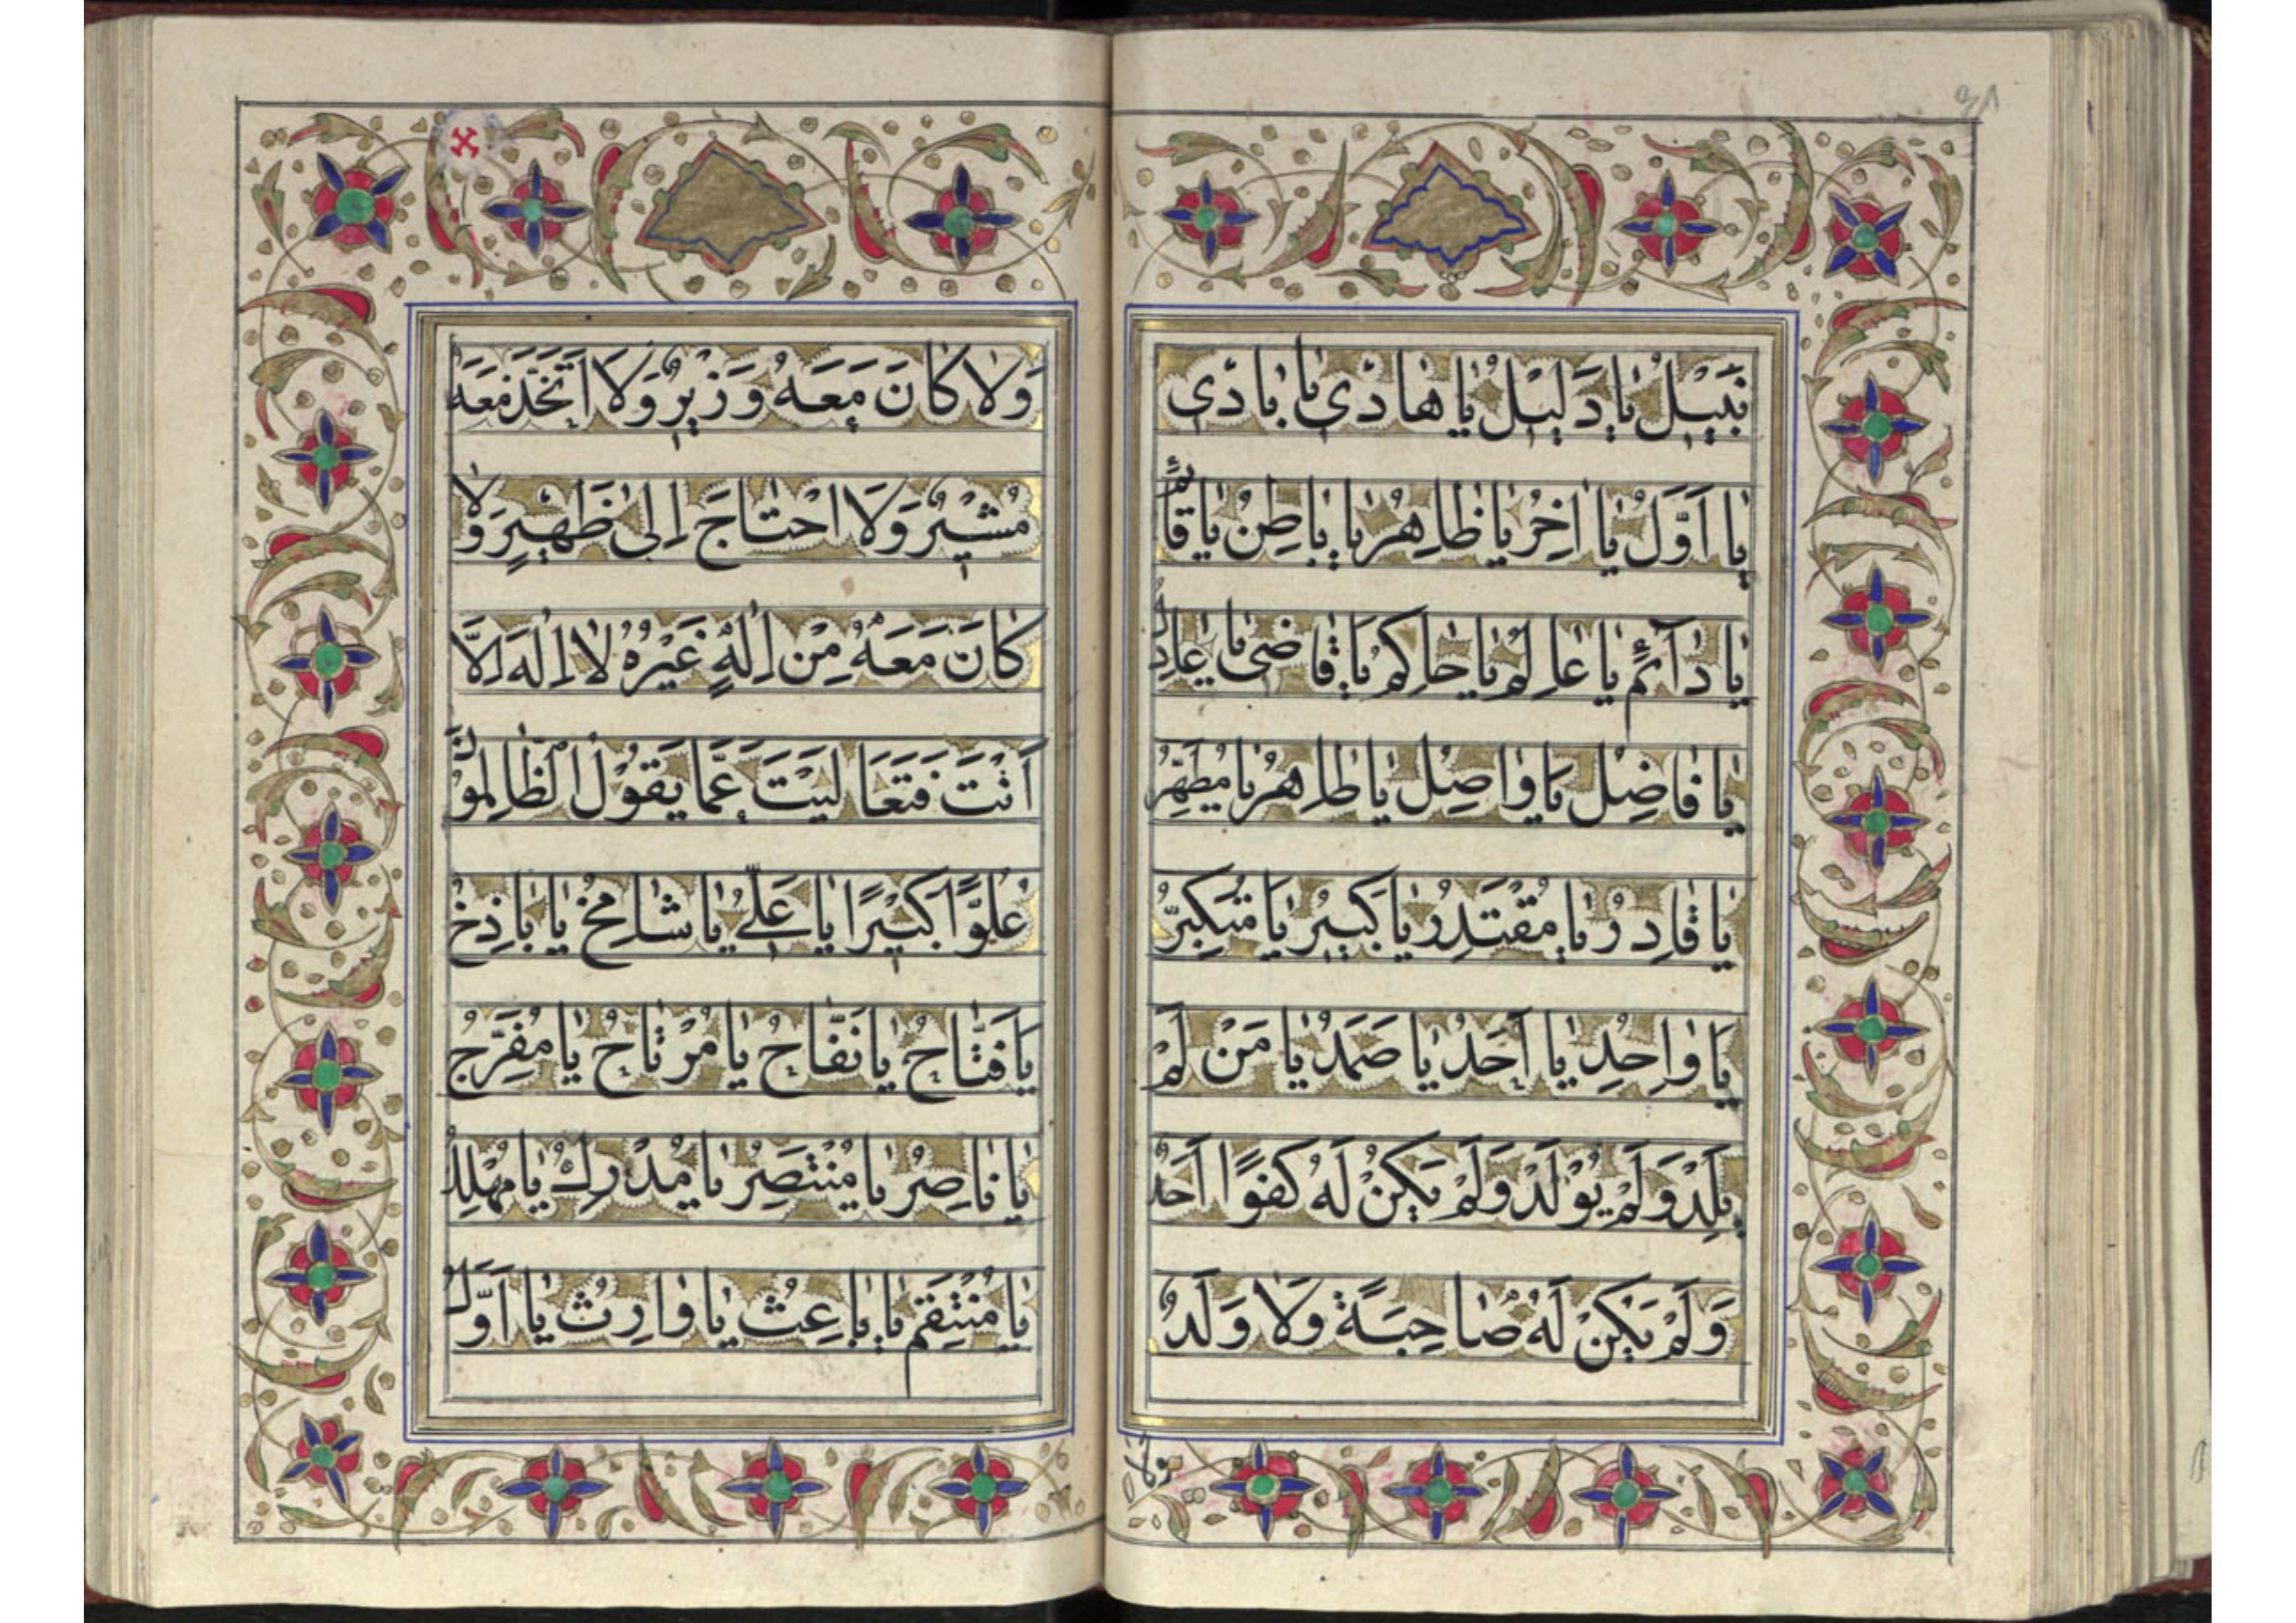 نَبيلُ يٰا دَليلُ يٰا هٰادي يٰا بادي
يٰا اَوَّلُ يٰا اٰخِرُ يٰا ظٰاهِرُ يٰا بٰاطِنُ يٰا قٰائِمُ
يٰا دٰآئِمُ يٰا عٰالِمُ يٰا حٰاكِمُ يٰا قٰاضى يٰا عٰادِلُ
يٰا فٰاضِلُ يٰا وٰاصِلُ يٰا طٰاهِرُ يٰا مُطَهِّرُ
يٰا قٰادِرُ يٰا مُقْتَدِرُ يٰا كَبيرُ يٰا مُتَكَبِّرُ
يٰا وٰاحِدُ يٰا اَحَدُ يٰا صَمَدُ يٰا مَنْ لَمْ
يَلِدْ وَلَمْ يُوْلَدْ وَلَمْ يَكُنْ لَهُ كُفُوًا اَحَدٌ
وَلَمْ يَكُنْ لَهُ صٰاحِبَةً وَلٰا وَلَدٌ
ولا
وَلٰا كٰانَ مَعَهُ وَزيرٌ وَلَا اتَّخَذَ مَعَهُ
مُشيْرٌ وَلَا احْتٰاجَ اِلىٰ ظَهيرٍ وَلٰا
كٰانَ مَعَهُ مِنْ اِلٰهٍ غَيْرُهُ لٰا اِلٰهَ اِلَّا
اَنْتَ فَتَعَالَيْتَ عَمَّا يَقُوْلُ الظّٰالِمُوْنَ
عُلُوًّا كَبيْرًا يٰا عَلىُّ يٰا شٰامِخُ يٰا بٰاذِخُ
يٰا فَتّٰاحُ يٰا نَفّٰاحُ يٰا مُرْتٰاحُ يٰا مُفَرِّجُ
يٰا نٰاصِرُ يٰا مُنْتَصِرُ يٰا مُدْرِكُ يٰا مُهْلِكُ
يٰا مُنْتَقِمُ يٰا بٰاعِثُ يٰا وٰارِثُ يٰا اَوَّلُ